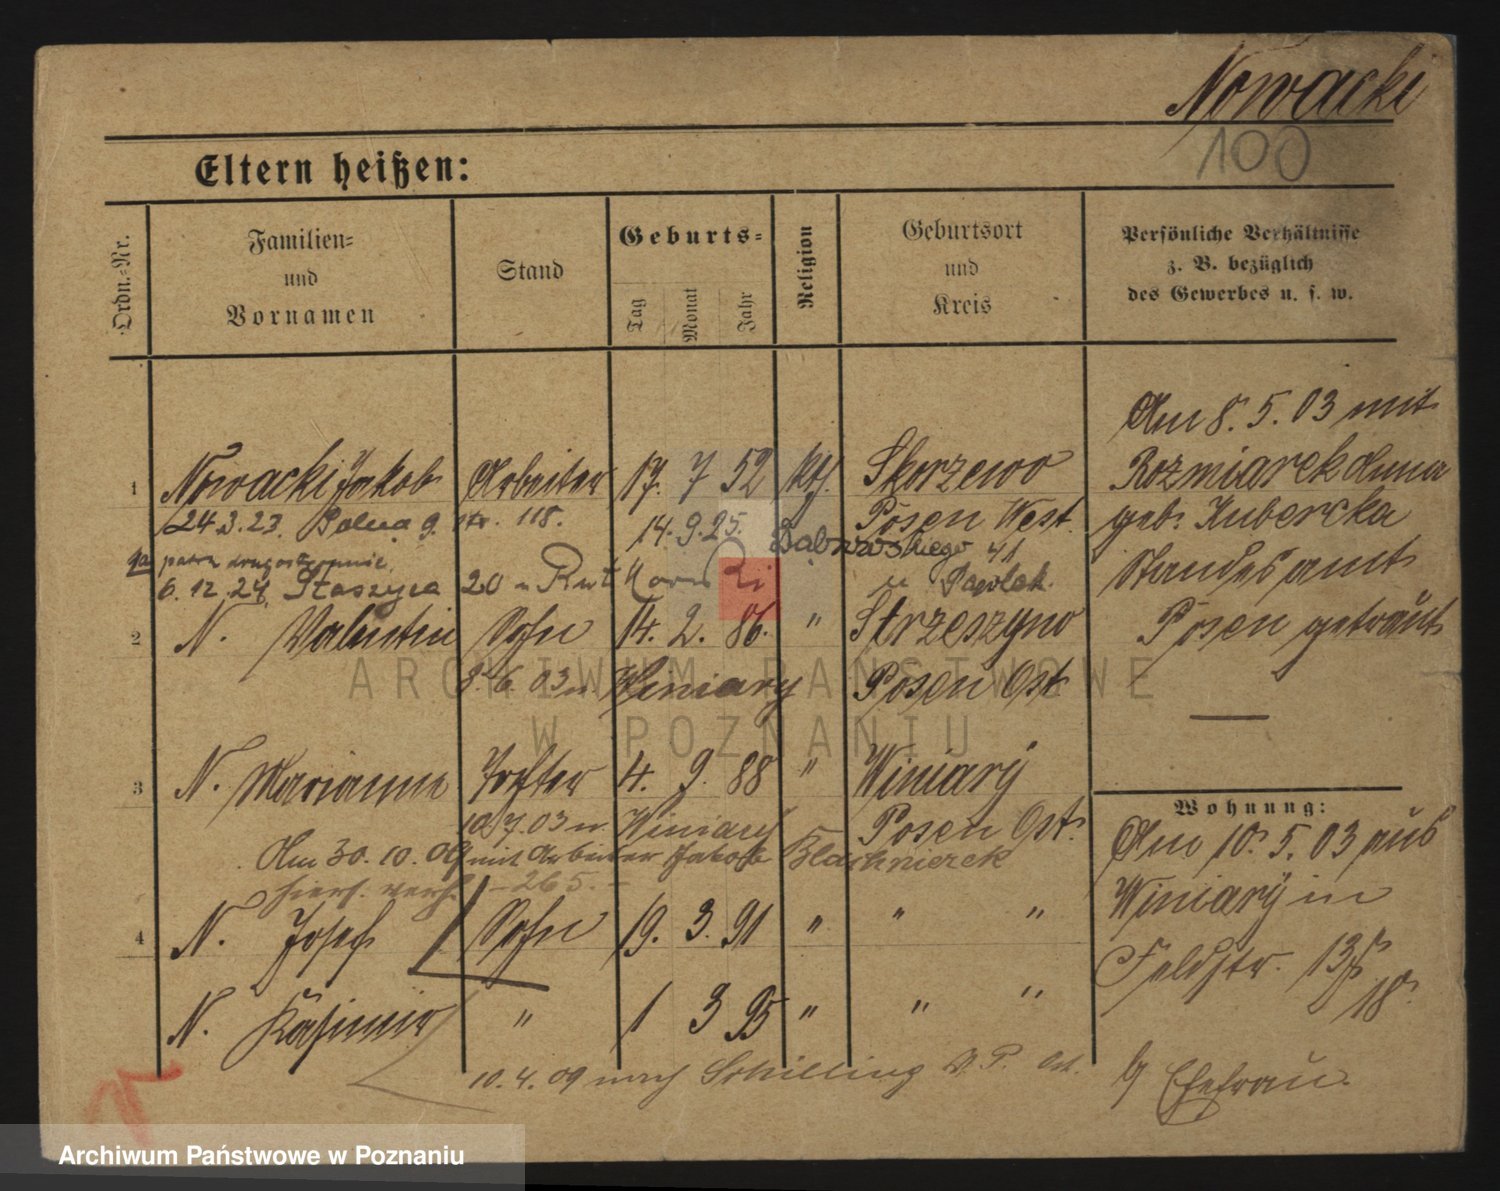 Nowacki
100
Eltern heißen:
Ordn.-Nr.
Familien- und Vornamen
Stand
Geburts-
Tag
Monat
Jahr
Religion
Geburtsort und Kreis
Persönliche Verhältnisse z. B. bezüglich des Gewerbes u. s. w.
1 Nowacki Jakob Arbeiter 17. 7 52 kth. Skorzewo
Posen West.
24.3.23. Polna 9. str. 118.
14.9.25. Dąbrowskiego 41
6.12.24. Staszyca 20 u
Am 8.5.03 mit
Rozmiarek Anna
geb. Kubercka
Standesamt
Posen getraut
2 N. Valentin Sohn 14. 2. 86. " Strzeszyno
8.6.03 n. Winiary Posen Ost
3 N. Marianne Tochter 4. 9. 88 " Winiary
10.7.03 n. Winiary Posen Ost.
Am 30.10.09 mit Arbeiter Jakob
hiers. verh. - 265. -
4 N. Josef Sohn 19. 3. 91 " " "
N. Kasimir " 1 3 95 " " "
10.4.09 nach Schilling
Wohnung:
Am 10.5.03 aus
Winiary in
Feldstr. 13
18.
Ehefrau.
ARCHIWUM PAŃSTWOWE
W POZNANIU
Archiwum Państwowe w Poznaniu